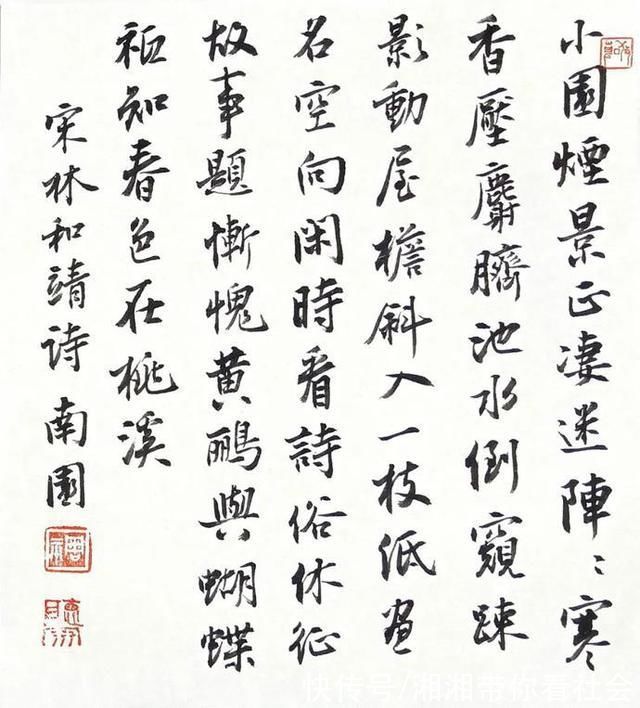 小園煙景正凄迷陣〻寒
香壓麝臍池水倒窺踈
影動屋檐斜入一枝低畫
名空向閑時看詩俗休征
故事題慚愧黃鸝與蝴蝶
祗知春色在桃溪
宋林和靖詩 南園
快传号/湘湘带你看社会